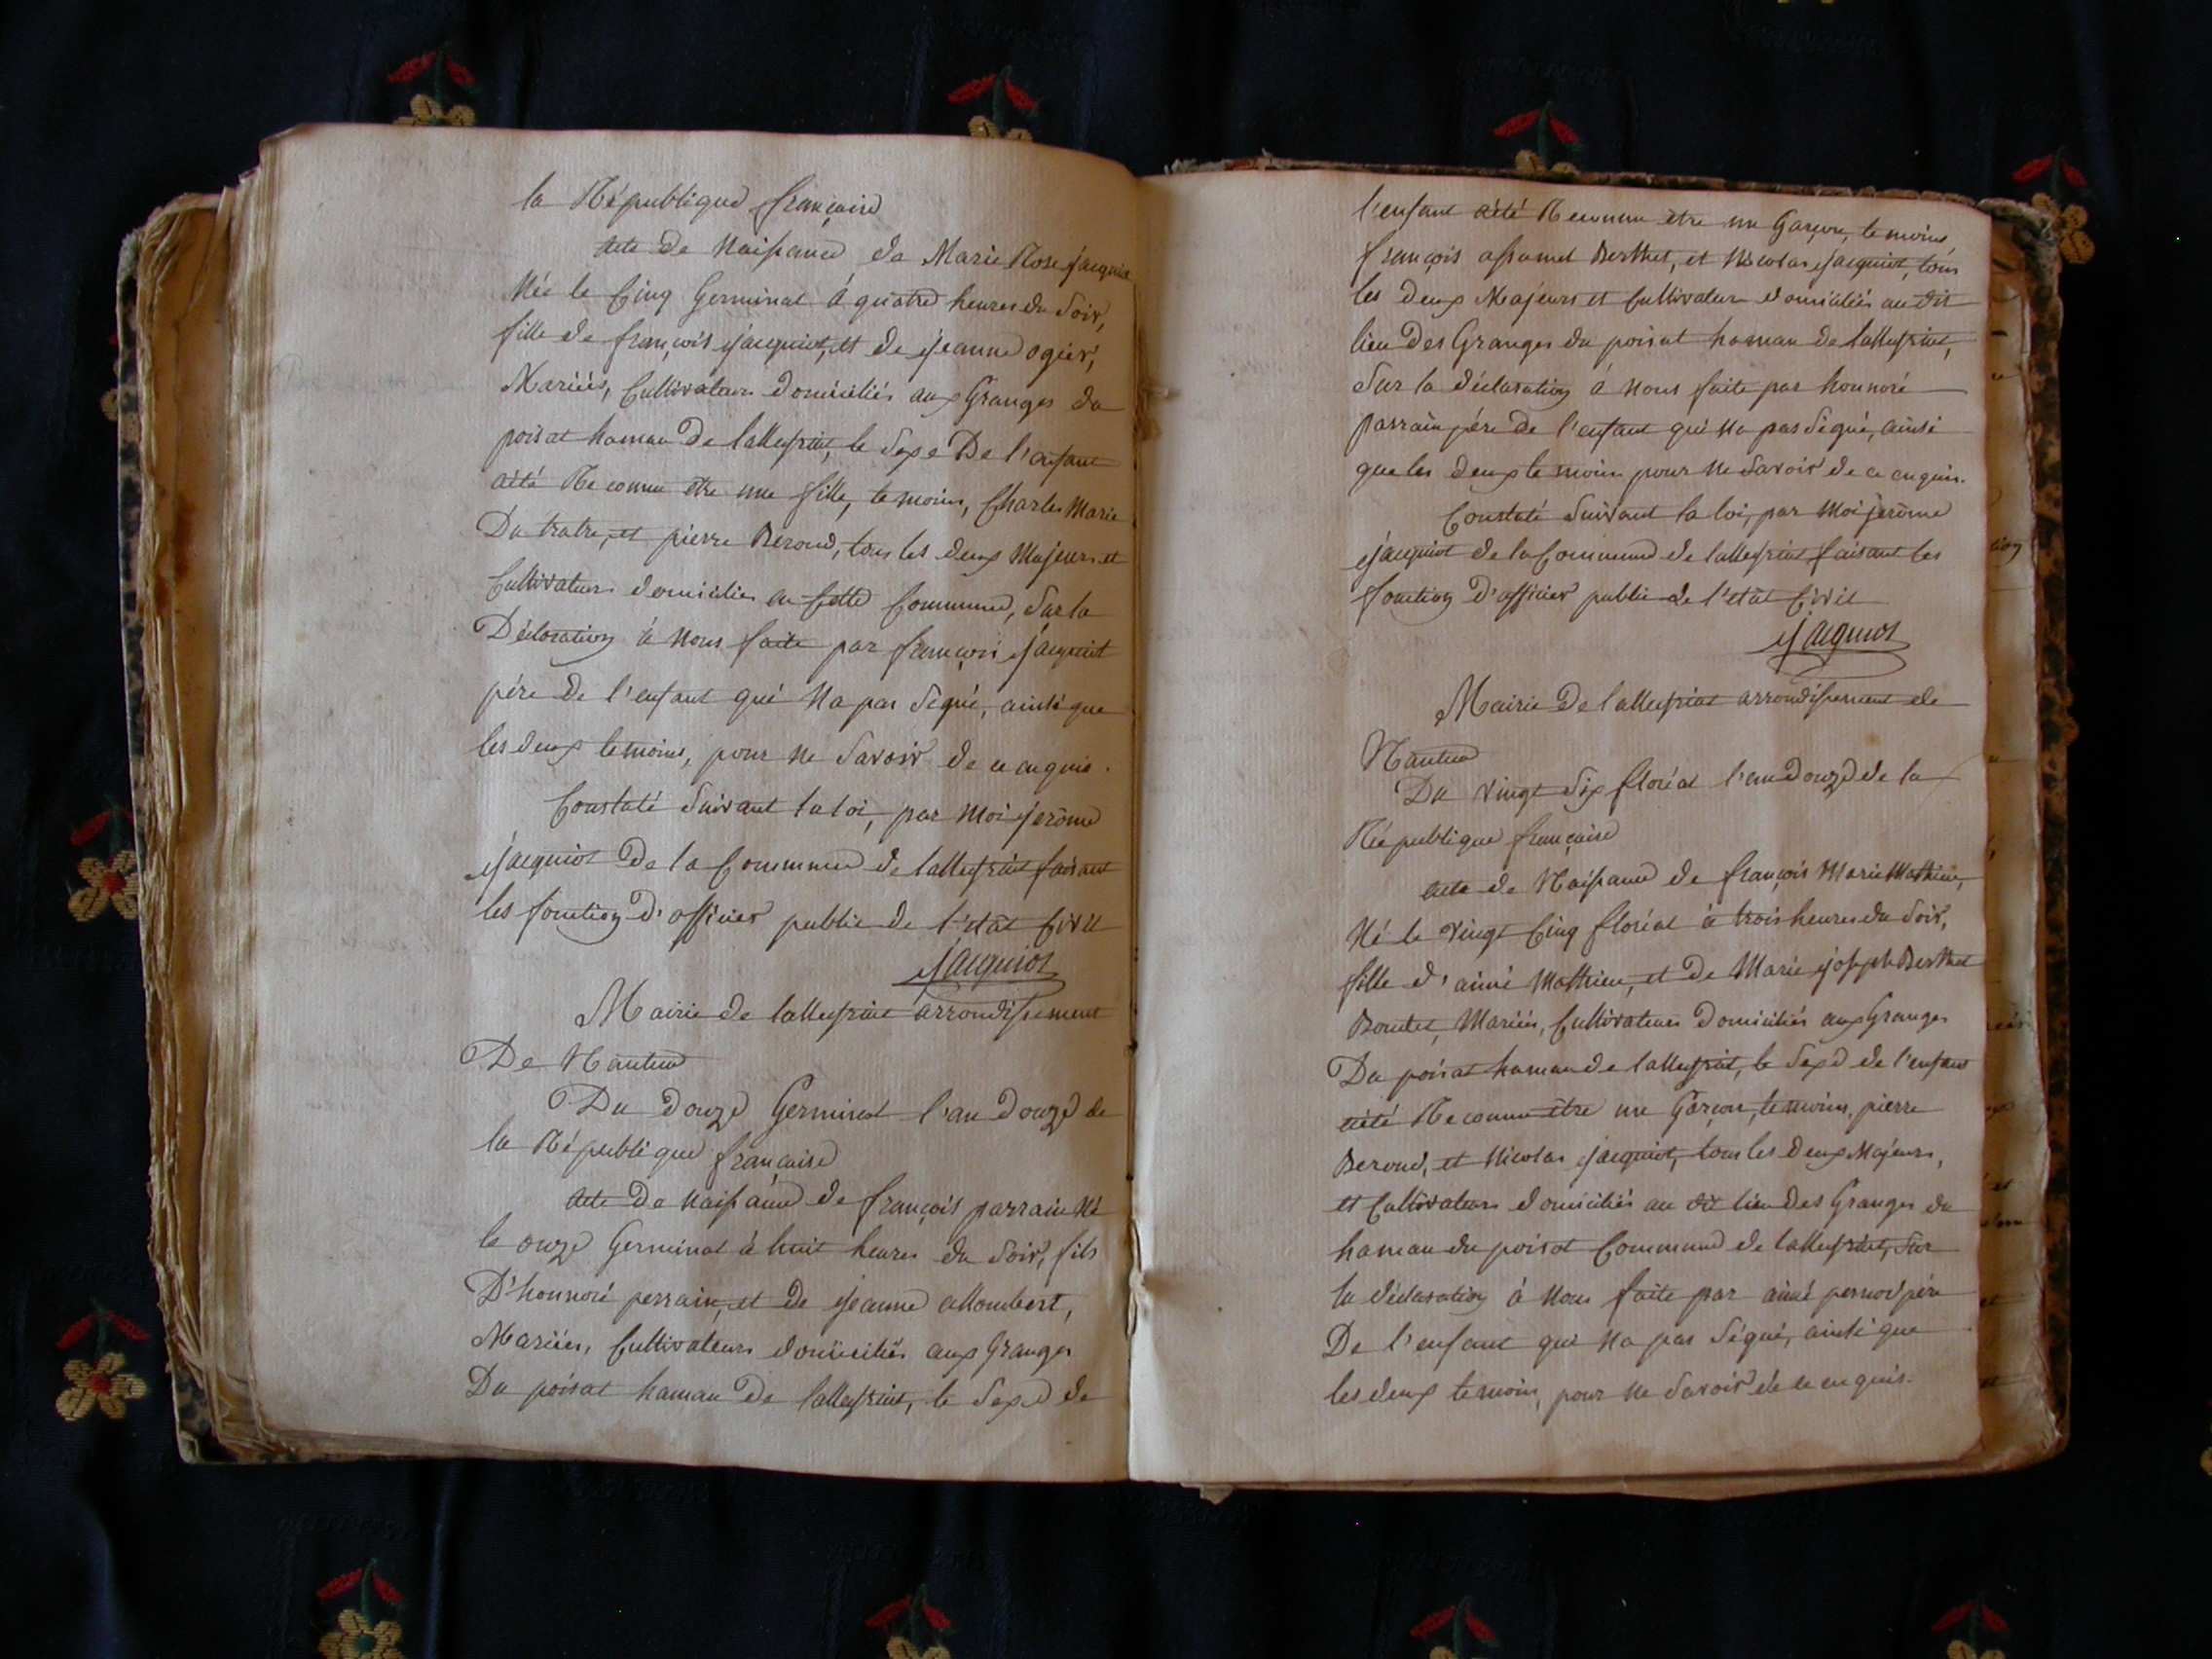 la République française
acte de Naissance de Marie Rose jacquiot
Née le Cinq Germinal à quatre heures du Soir,
fille de françois jacquiot, et de jeanne ogier,
Mariées, Cultivateurs domiciliés aux Granges du
poisat hamau de lalleyriat, le Sexe De l'enfant
aété Reconnu être une fille, temoins, Charles Marie
Du tratre, et pierre Beroud, tous les deux Majeurs et
Cultivateurs domiciliés en Cette Commune, Sur la
Déclaration à Nous faite par françois jacquiot
pére de l'enfant qui Na pas Signé, ainsi que
les deux temoins, pour Ne Savoir de ce enquis.
Constaté Suivant la loi, par Moi jerôme
jacquiot De la Commune de lalleyriat faisant
les fonction d'officier public de l'etât Civil
jacquiot
Mairie de lalleyriat arrondissement
De Nantua
Du douze Germinal l'an douze de
la République française
acte De naissance de françois parrain Né
le onze Germinal à huit heures du Soir, fils
D'honnoré perrain, et de jeanne allombert,
Mariées, Cultivateurs domiciliés aux Granges
Du poisat hamau De lalleyriat, le Sexe de
l'enfant aété Reconnu être un Garçon, temoins,
françois Berthet, et Nicolas jacquiot, tous
les deux Majeurs et Cultivateurs domiciliés au dit
lieu Des Granges du poisat hamau de lalleyriat,
Sur la déclaration à Nous faite par honnoré
parrain pére de l'enfant qui Na pas Signé, ainsi
que les deux temoins pour Ne Savoir de ce enquis.
Constaté Suivant la loi, par Moi jerôme
jacquiot de la Commune de lalleyriat faisant les
fonction d'officier public de l'etât Civil
jacquiot
Mairie De lalleyriat arrondissement de
Nantua
Du vingt Six floréal l'an douze de la
République française
acte de Naissance de françois Marie Mathieu,
Né le vingt Cinq floréal à trois heures du Soir,
fille d'aimé Mathieu, et De Marie joseph Berthet
Mariées, Cultivateurs Domiciliés aux Granges
Du poisat hamau de lalleyriat, le Sexe de l'enfant
aété Reconnu être une Garçon, temoins, pierre
Beroud, et Nicolas jacquiot, tous les deux Majeurs,
et Cultivateurs domiciliés au dit lieu Des Granges du
hamau du poisat Commune de lalleyriat, Sur
la déclaration à Nous faite par aimé pére
De l'enfant qui Na pas Signé, ainsi que
les deux temoins, pour Ne Savoir de ce enquis.